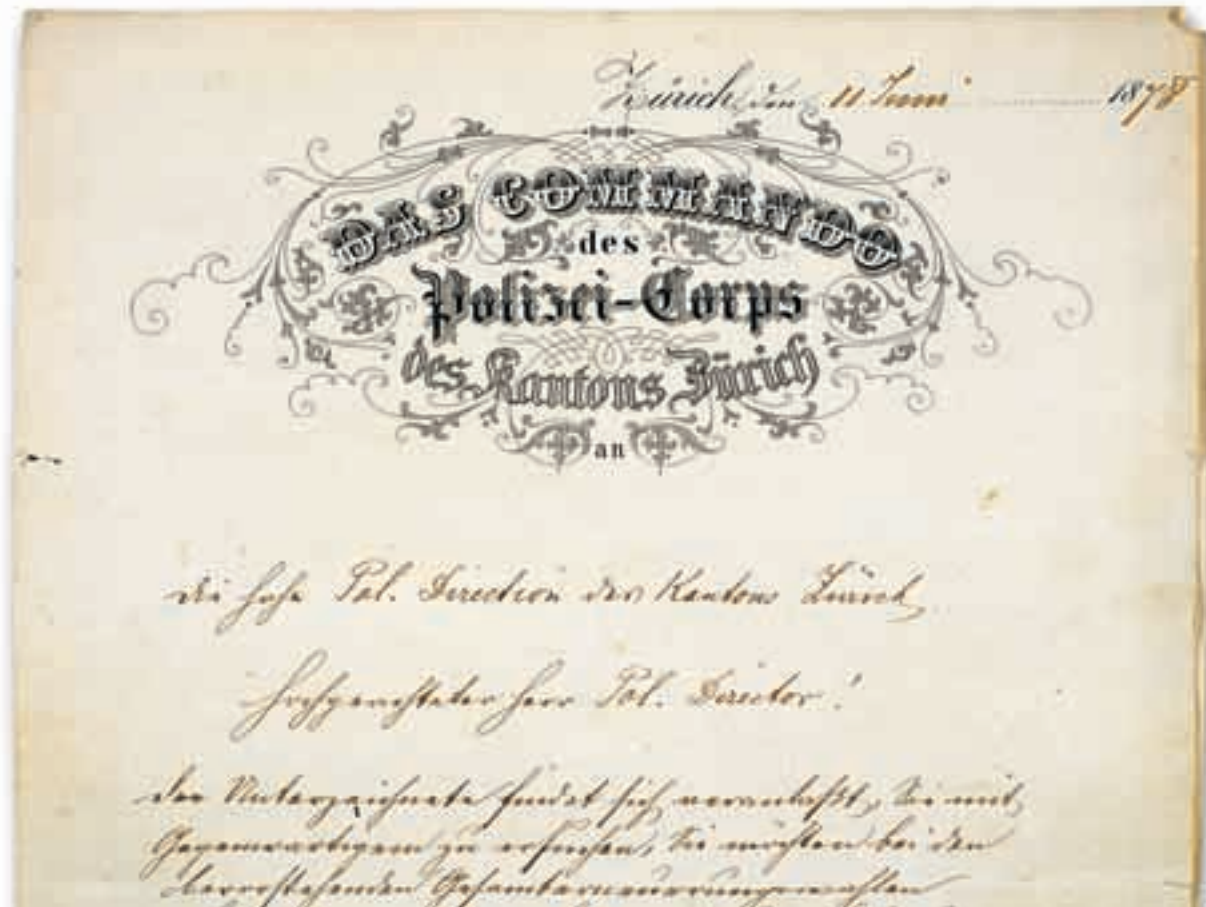 Zürich, den 11 Juni 1878
DAS COMMANDO
des
Polizei-Corps
des Kantons Zürich
an
die hohe Pol. Direction des Kantons Zürich
Hochgeachteter Herr Pol. Director!
Der Unterzeichnete findet sich veranlaßt, Sie mit
Gegenwärtigem zu ersuchen, Sie möchten bei den
bevorstehenden Gesamterneuerungswahlen